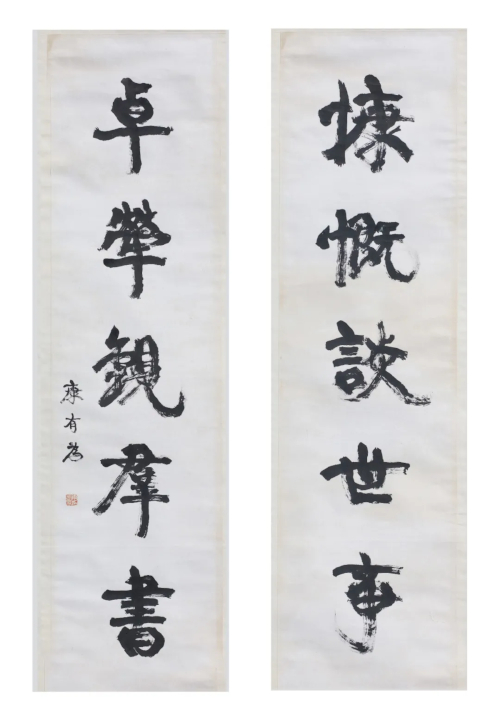 慷慨談世事
卓犖觀群書
康有為